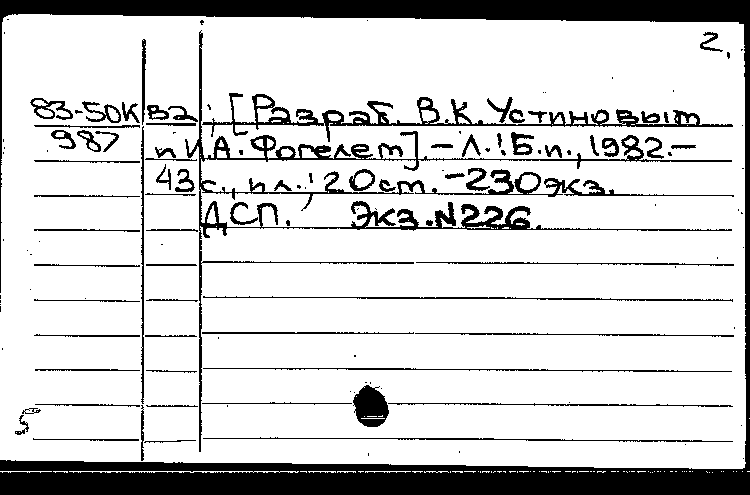 2.
83-50К ва ; [Разраб. В.К. Устиновым
987 и И.А. Фогелем]. – Л.: Б.и., 1982. –
43 с., ил.; 20 см. – 230 экз.
ДСП. Экз. N226.
5